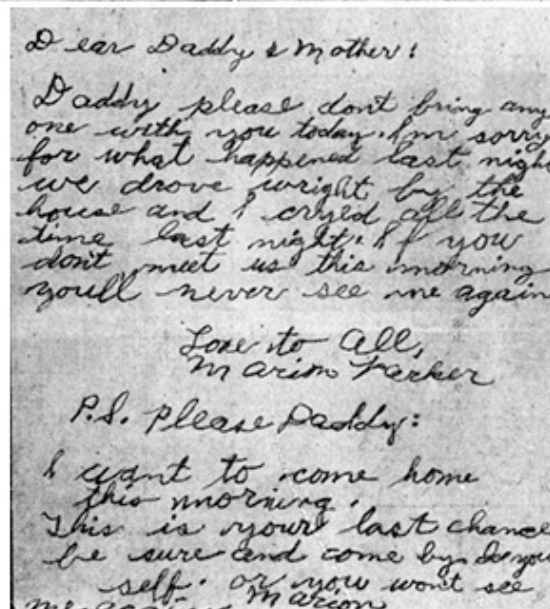 Dear Daddy & Mother:
Daddy please dont bring any
one with you today. I'm sorry
for what happened last night
we drove wright by the
house and I cryed all the
time last night. If you
don't meet us this morning
youll never see me again
Love to All,
Marion Parker
P.S. Please Daddy:
I want to come home
this morning.
This is your last chance
be sure and come by your
self. or you wont see
me again Marion